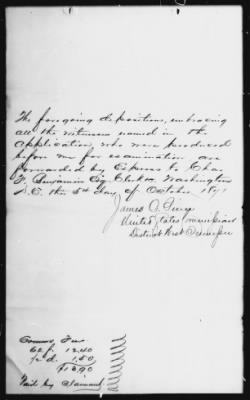 The foregoing depositions, embracing
all the witnesses named in the
Application, who were produced
before me for examination are
forwarded by Express to Chas.
Benjamin Clerk Washington
D.C. this 5th day of October
James
United States
District West Tennessee
Comrs. Fees
62 f. 12.40
1.50
$13.90
Paid by Claimant